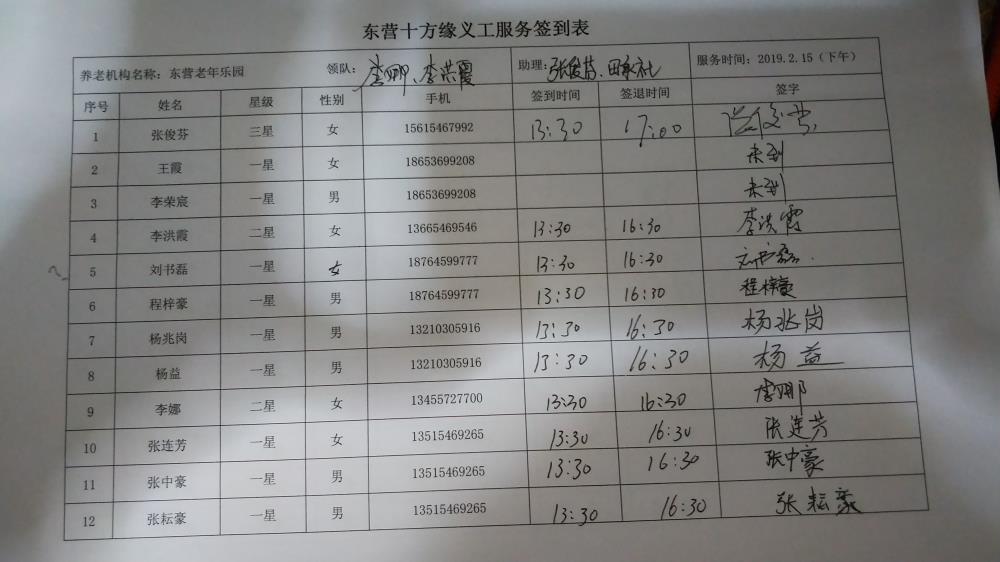 东营十方缘义工服务签到表
养老机构名称：东营老年乐园 领队：李娜、李洪霞 助理：张俊芬、田家礼 服务时间：2019.2.15（下午）
序号 姓名 星级 性别 手机 签到时间 签退时间 签字
1 张俊芬 三星 女 15615467992 13:30 17:00 张俊芬
2 王霞 一星 女 18653699208 未到
3 李荣宸 一星 男 18653699208 未到
4 李洪霞 二星 女 13665469546 13:30 16:30 李洪霞
5 刘书磊 一星 女 18764599777 13:30 16:30 刘书磊
6 程梓豪 一星 男 18764599777 13:30 16:30 程梓豪
7 杨兆岗 一星 男 13210305916 13:30 16:30 杨兆岗
8 杨益 一星 男 13210305916 13:30 16:30 杨益
9 李娜 二星 女 13455727700 13:30 16:30 李娜
10 张连芳 一星 女 13515469265 13:30 16:30 张连芳
11 张中豪 一星 男 13515469265 13:30 16:30 张中豪
12 张耘豪 一星 男 13515469265 13:30 16:30 张耘豪